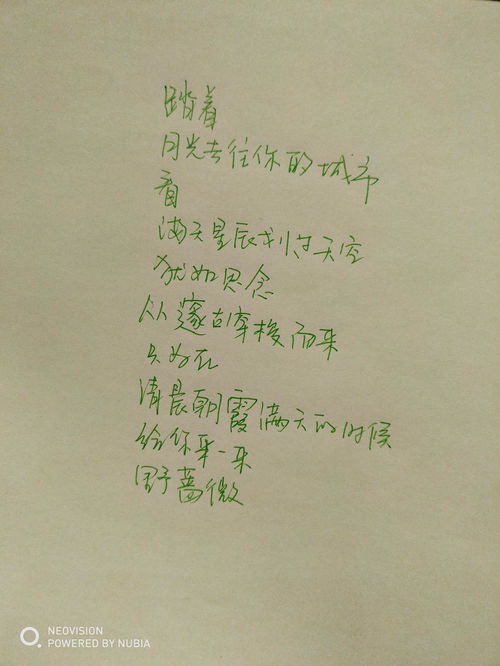 踏着
月光去往你的城市
看
满天星辰划过天空
犹如思念
从邃古穿梭而来
只为在
清晨朝霞满天的时候
给你采一朵
野蔷薇
NEOVISION
POWERED BY NUBIA